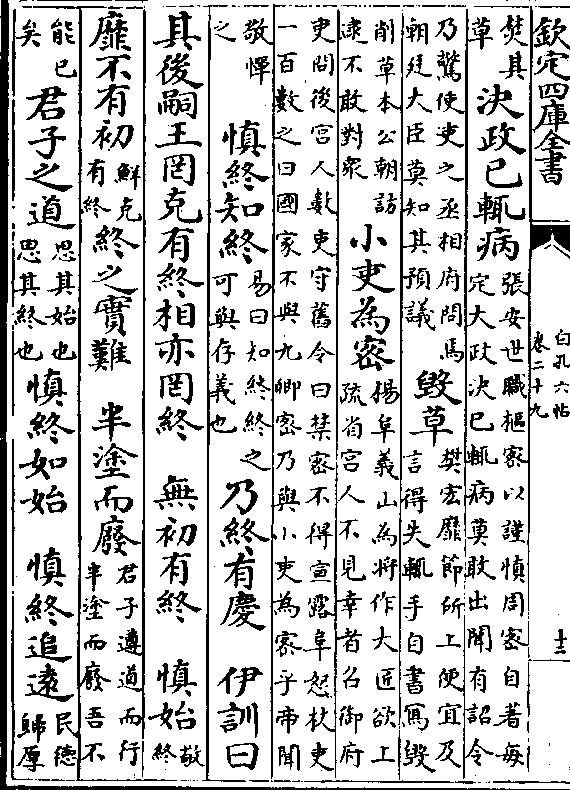 欽定四庫全書
白孔六帖
卷二十九
十三
焚其
草
決政已輒病
張安世職樞密以謹慎周密自著每
定大政決已輒病莫敢出聞有詔令
乃驚使吏之丞相府問焉
朝廷大臣莫知其預議
毀草
樊宏靡節所上便宜及
言得失輒手自書寫毀
削草本公朝訪
逮不敢對衆
小吏為密
楊阜義山為將作大匠欲上
疏省宮人不見幸者召御府
吏問後宮人數吏守舊令曰禁密不得宣露阜怒杖吏
一百數之曰國家不與九卿密乃與小吏為密乎帝聞
敬憚
之
慎終知終
易曰知終終之
可與存義也
乃終有慶 伊訓曰
其後嗣王罔克有終相亦罔終 無初有終 慎始
敬
終
靡不有初
鮮克
有終
終之實難 半塗而廢
君子遵道而行
半塗而廢吾不
能已
矣
君子之道
思其始也
思其終也
慎終如始 慎終追遠
民德
歸厚